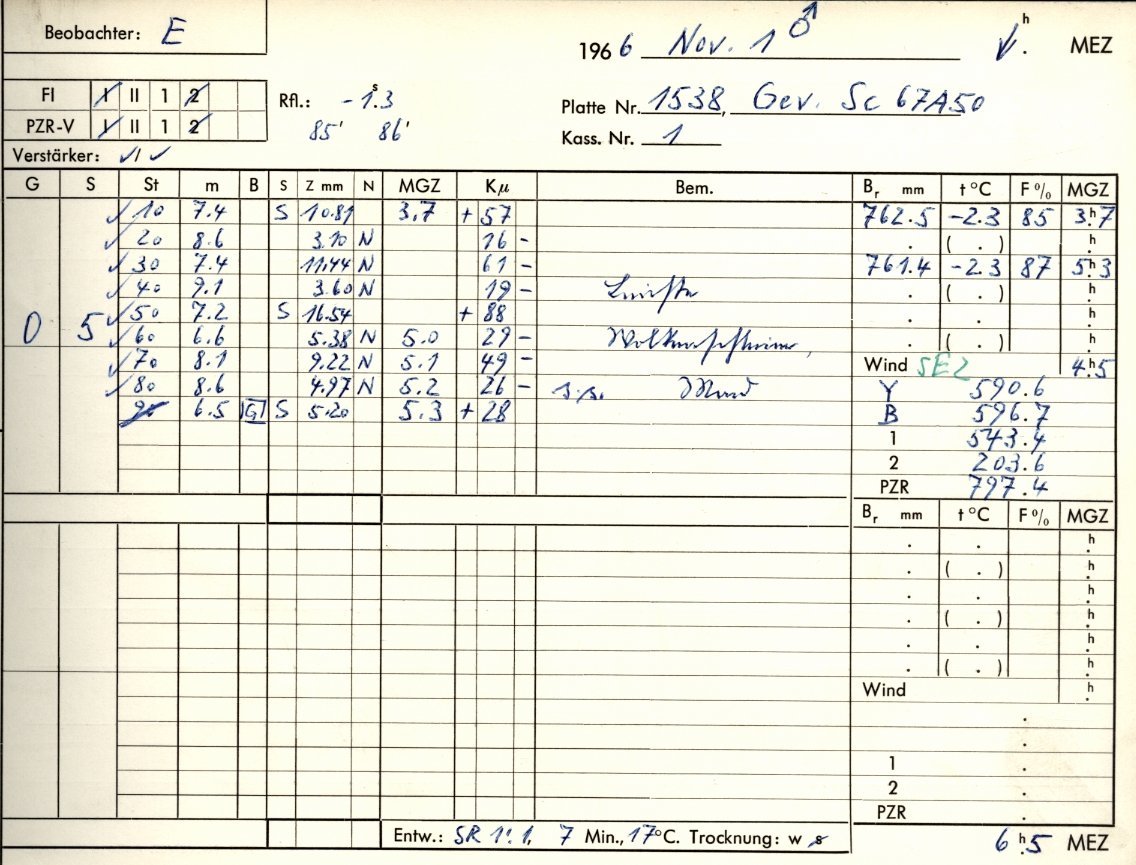 Beobachter: E
1966 Nov. 1 ♂ h . MEZ
FI I II 1 2
Rfl.: -1ˢ.3
Platte Nr. 1538, Gev. Sc 67A50
PZR-V I II 1 2
85' 86'
Kass. Nr. 1
Verstärker: ✓/✓
G S St m B S Z mm N MGZ Kμ Bem. Br mm t °C F % MGZ
✓ 10 7.4 S 10.81 3.7 + 57 762.5 -2.3 85 3ʰ.7
✓ 20 8.6 3.10 N 16 - . ( . ) h .
✓ 30 7.4 11.44 N 61 - 761.4 -2.3 87 5ʰ.3
✓ 40 9.1 3.60 N 19 - . ( . ) h .
0 5 ✓ 50 7.2 S 16.54 + 88 . . h .
✓ 60 6.6 5.38 N 5.0 29 - . ( . ) h .
✓ 70 8.1 9.22 N 5.1 49 - Wind SE2 4ʰ.5
✓ 80 8.6 4.97 N 5.2 26 - Mond Y 590.6
90 6.5 G S 5.20 5.3 + 28 B 596.7
1 543.4
2 203.6
PZR 797.4
Br mm t °C F % MGZ
. . h .
. ( . ) h .
. . h .
. ( . ) h .
. . h .
. ( . ) h .
Wind h .
.
.
1 .
2 .
PZR .
Entw.: SR 1:1, 7 Min., 17°C. Trocknung: w s 6ʰ.5 MEZ